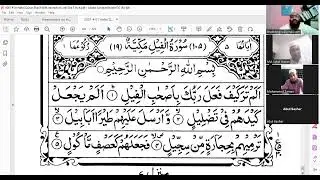 اٰيَاتُهَا ٥ (١٠٥) سُوْرَةُ الْفِيْلِ مَكِّيَّةٌ (١٩) رُكُوْعُهَا ١
بِسْمِ اللّٰهِ الرَّحْمٰنِ الرَّحِيْمِ
اَلَمْ تَرَ كَيْفَ فَعَلَ رَبُّكَ بِاَصْحٰبِ الْفِيْلِ ١ اَلَمْ يَجْعَلْ
كَيْدَهُمْ فِيْ تَضْلِيْلٍ ٢ وَّاَرْسَلَ عَلَيْهِمْ طَيْرًا اَبَابِيْلَ ٣
تَرْمِيْهِمْ بِحِجَارَةٍ مِّنْ سِجِّيْلٍ ٤ فَجَعَلَهُمْ كَعَصْفٍ مَّاْكُوْلٍ ٥
Abul Basher
Abul Basher